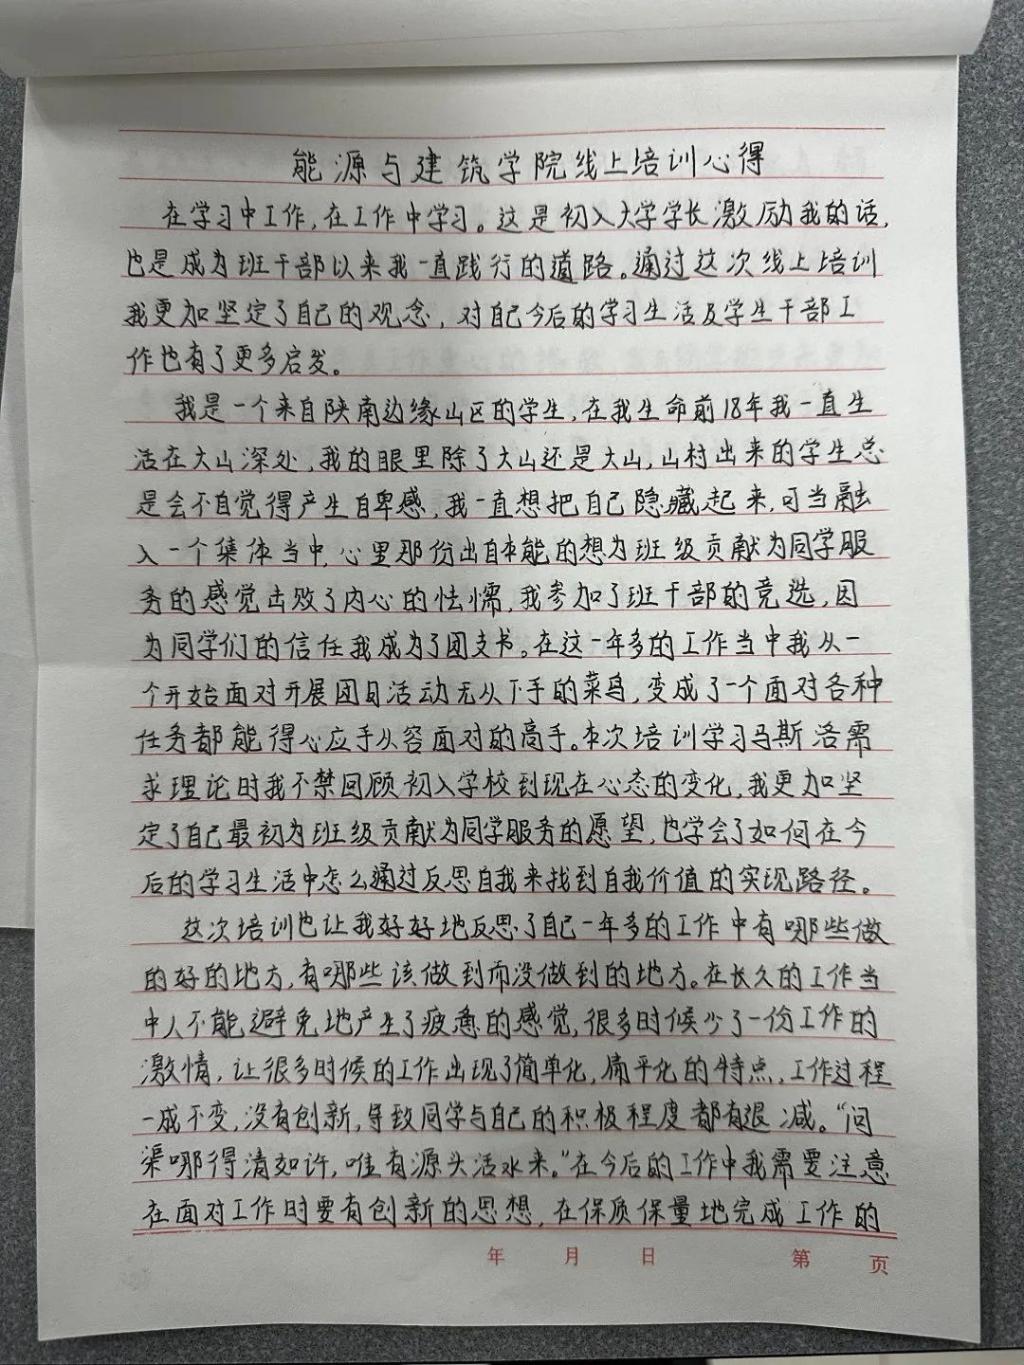 能源与建筑学院线上培训心得
在学习中工作，在工作中学习。这是初入大学学长激励我的话，
也是成为班干部以来我一直践行的道路。通过这次线上培训
我更加坚定了自己的观念，对自己今后的学习生活及学生干部工
作也有了更多启发。
我是一个来自陕南边缘山区的学生，在我生命前18年我一直生
活在大山深处，我的眼里除了大山还是大山，山村出来的学生总
是会不自觉得产生自卑感，我一直想把自己隐藏起来，可当融
入一个集体当中，心里那份出自本能的想为班级贡献为同学服
务的感觉击败了内心的怯懦，我参加了班干部的竞选，因
为同学们的信任我成为了团支书。在这一年多的工作当中我从一
个开始面对开展团日活动无从下手的菜鸟，变成了一个面对各种
任务都能得心应手从容面对的高手。本次培训学习马斯洛需
求理论时我不禁回顾初入学校到现在心态的变化，我更加坚
定了自己最初为班级贡献为同学服务的愿望，也学会了如何在今
后的学习生活中怎么通过反思自我来找到自我价值的实现路径。
这次培训也让我好好地反思了自己一年多的工作中有哪些做
的好的地方，有哪些该做到而没做到的地方。在长久的工作当
中人不能避免地产生了疲惫的感觉，很多时候少了一份工作的
激情，让很多时候的工作出现了简单化，扁平化的特点，工作过程
一成不变，没有创新，导致同学与自己的积极程度都有退减。“问
渠哪得清如许，唯有源头活水来。”在今后的工作中我需要注意
在面对工作时要有创新的思想，在保质保量地完成工作的
年 月 日 第 页